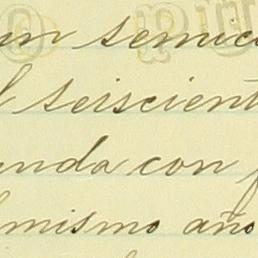 un semici
l seiscient
unda con f
l mismo año